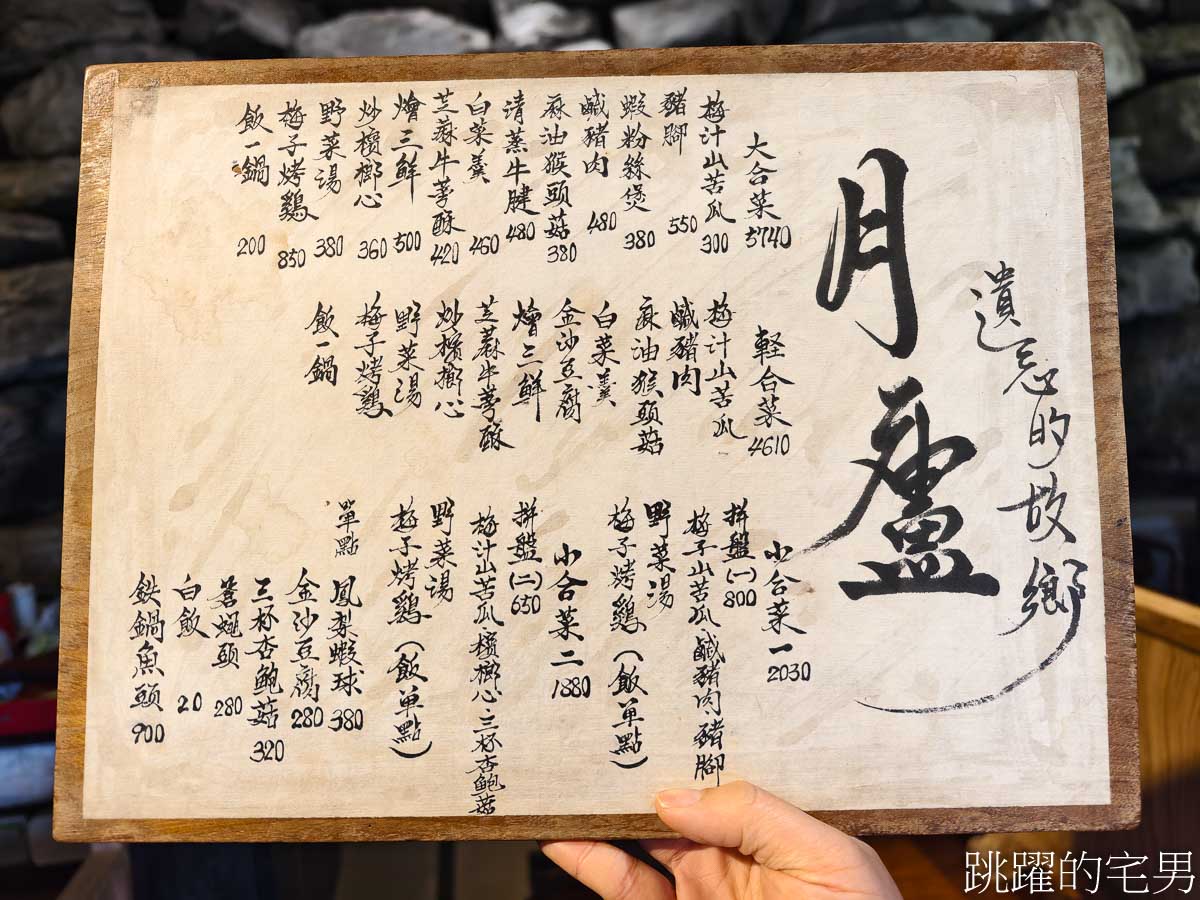 遺忘的故鄉
月廬
大合菜 5740
梅汁山苦瓜 300
豬腳 550
鹹豬肉 480
蝦粉絲煲 380
麻油猴頭菇 380
清蒸牛腱 480
白菜羹 460
芝蔴牛蒡酥 420
燴三鮮 500
炒檳榔心 360
野菜湯 380
梅子烤鷄 850
飯一鍋 200
軽合菜 4610
梅汁山苦瓜
鹹豬肉
麻油猴頭菇
白菜羹
金沙豆腐
燴三鮮
芝蔴牛蒡酥
炒檳榔心
野菜湯
梅子烤鷄
飯一鍋
小合菜一 2030
拼盤(一) 800
梅子山苦瓜.鹹豬肉.豬腳
野菜湯
梅子烤鷄(飯单點)
小合菜二 1880
拼盤(二) 650
梅汁山苦瓜.檳榔心.三杯杏鮑菇
野菜湯
梅子烤鷄(飯单點)
單點
鳳梨蝦球 380
金沙豆腐 280
三杯杏鮑菇 320
蒼蠅頭 280
白飯 20
鉄鍋魚頭 900
跳躍的宅男